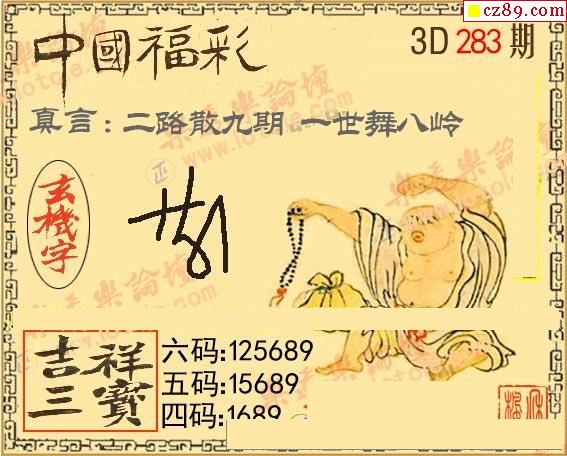 cz89.com
中國福彩
3D 283 期
真言：二路散九期 一世舞八岭
玄機字
吉祥三寶
六码:125689
五码:15689
四码:1689